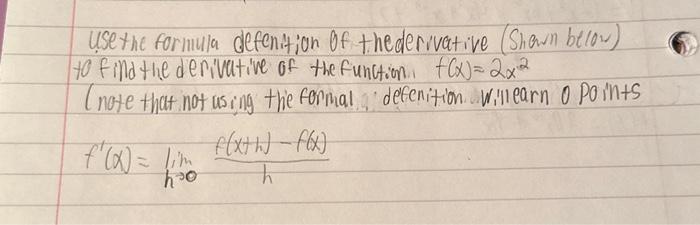 use the formula defenition of the derivative (shown below)
to find the derivative of the function. f(x)=2x²
(note that not using the formal defenition will earn 0 points
f'(x) = lim h→0 f(x+h) - f(x) / h